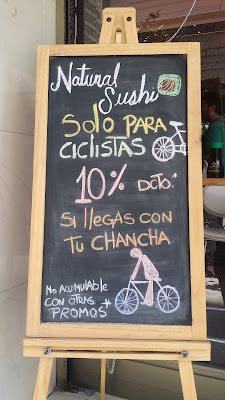 Natural
Sushi
Solo PARA
CiCliSTAS
10% DCTO.*
Si llegas con
TU CHANCHA.
No Acumulable
con otras
PROMOS *